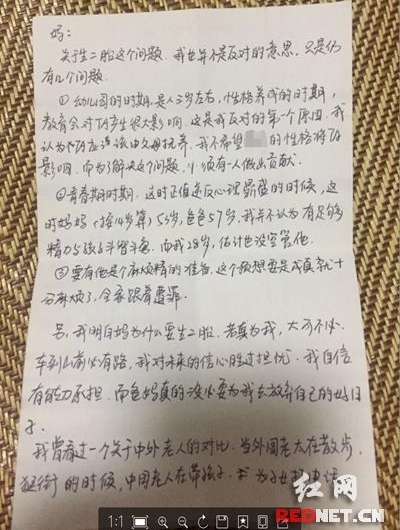 妈:
关于生二胎这个问题. 我也并不是反对的意思. 只是仍
有几个问题.
①幼儿园的时期,是人3岁左右,性格养成的时期,
教育会对TA产生很大影响. 这是我反对的第一个原因. 我
认为个TA应该由父母抚养. 我不希望 的性格将TA
影响. 而为了解决这个问题,必须有一人做出贡献.
②青春期时期. 这时正值逆反心理最盛的时候,这
时妈妈(按14岁算)55岁,爸爸57岁,我并不认为有足够
精力与孩子斗智斗勇. 而我28岁,估计也没空管他.
③要有他是个麻烦精的准备. 这个预想要是成真就十
分麻烦了,全家跟着遭罪.
另,我明白妈为什么要生二胎. 若真为我,大可不必.
车到山前必有路,我对未来的信心胜过担忧. 我自信
有能力承担. 而爸妈真的没必要为我去放弃自己的好日
子.
我曾看过一个关于中外老人的对比. 当外国老太在散步、
逛街的时候,中国老人在带孩子.
红网
REDNET.CN
1:1